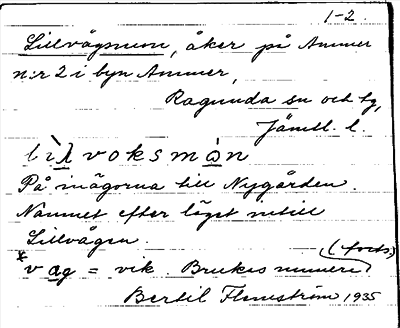 1-2.
Lillvågsmon, åker på Ammer
n:r 2 i byn Ammer,
Ragunda sn och tg,
Jämtl. l.
lìλvoksmòn
På inägorna till Nygården.
Namnet efter läget intill
Lillvågen.
(forts.)
*våg = vik. Brukas numera
Bertil Flemström 1935